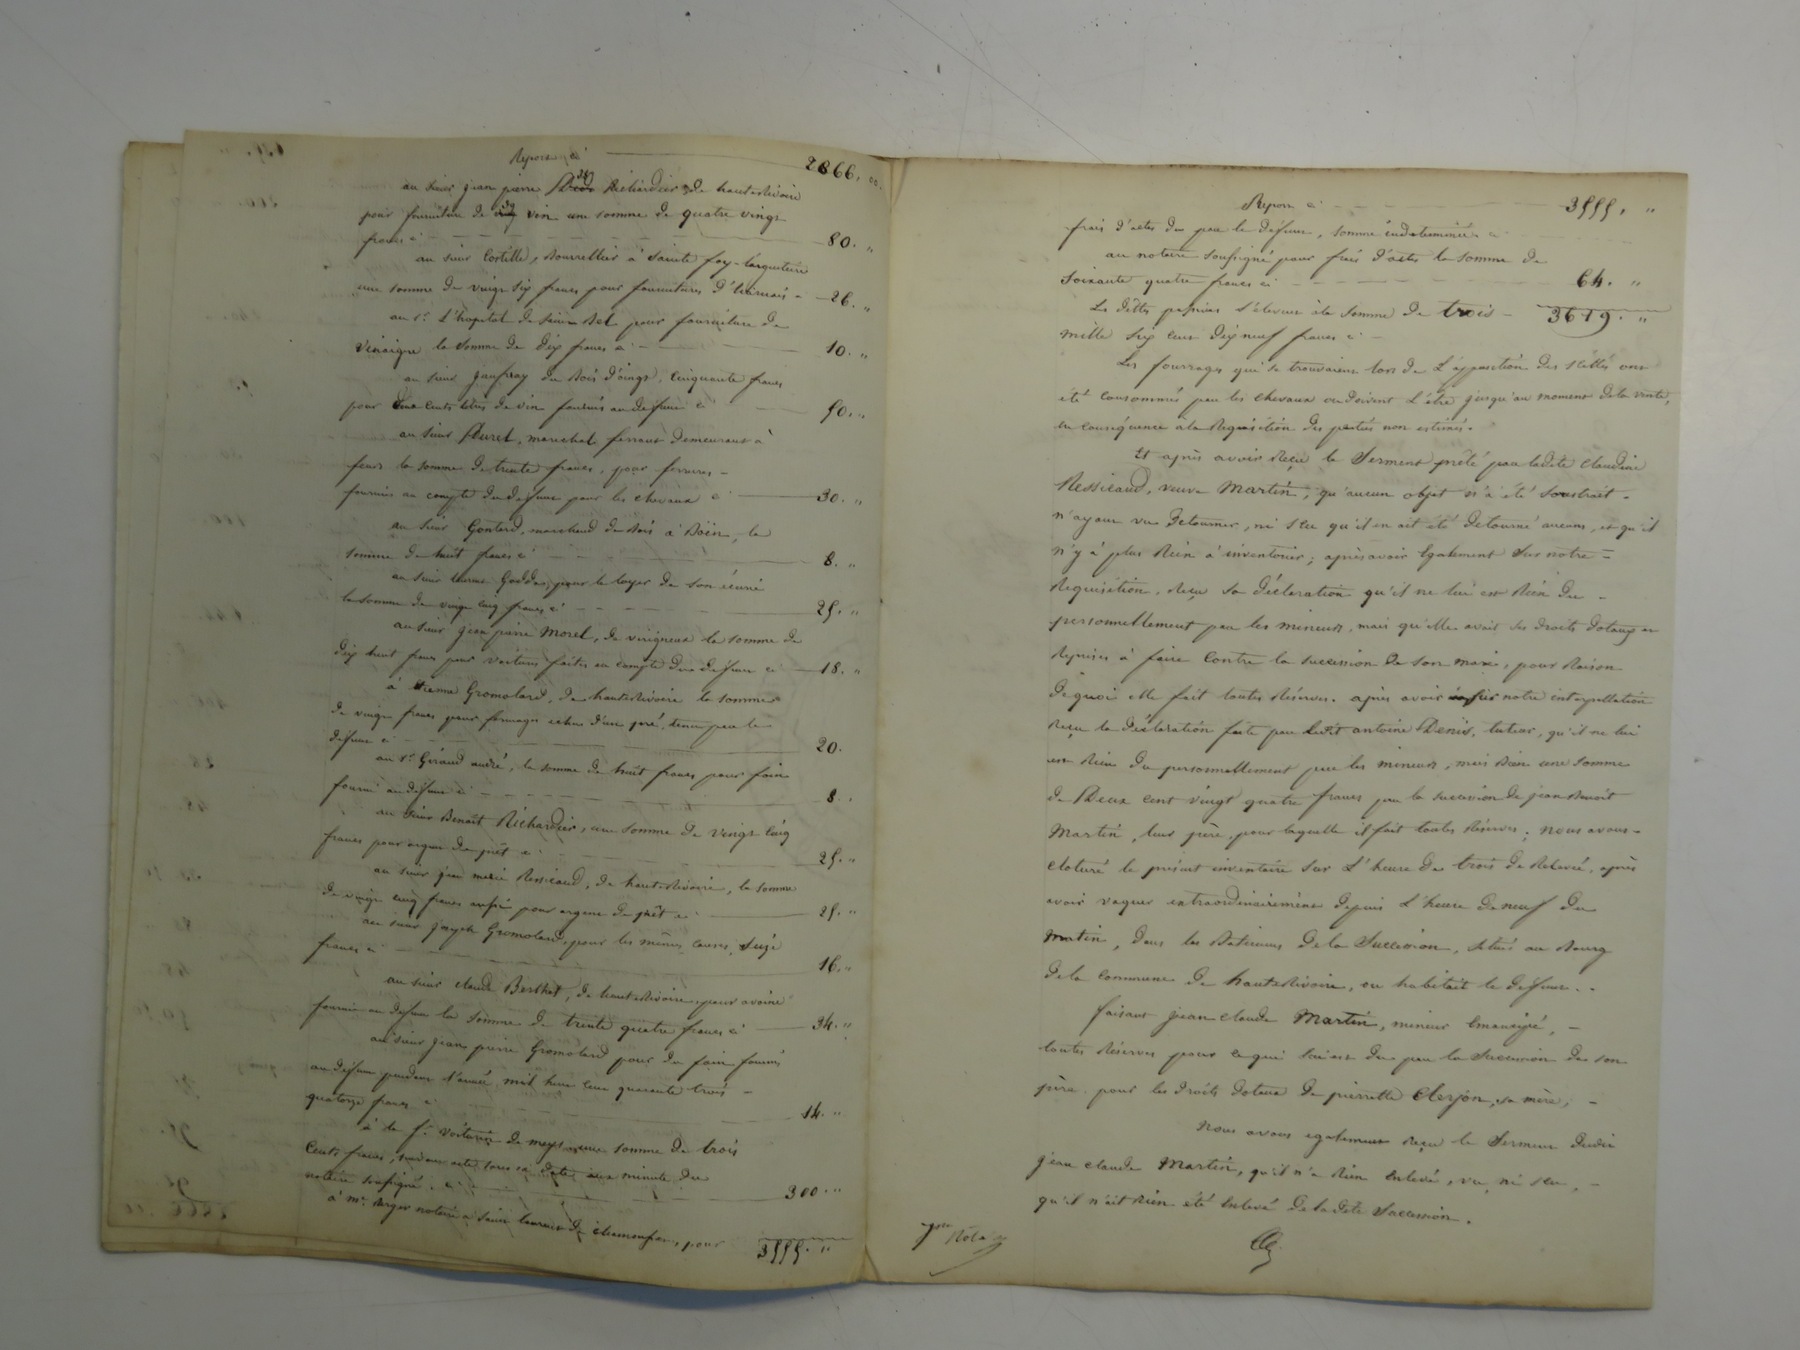 Report ci 2866, 00.
au sieur jean pierre Richardier de hauterivoire
pour fourniture de vin une somme de quatre vingt
francs ci 80. "
au sieur Cortille, Bourrellier à Sainte foy-l'argentiere
une somme de vingt six francs pour fournitures d'harnais - 26. "
au Sr. L'hopital de Saint Bel pour fourniture de
Vinaigre la Somme de Dix francs ci 10. "
au sieur Jaufray du Bois d'oingt, Cinquante francs
pour cents litres de vin fournis au défunt ci 50. "
au sieur Duret, marechal ferrant demeurant à
feurs la somme de trente francs, pour ferrures -
fournies au compte du défunt pour les chevaux ci 30. "
au sieur Gontard, marchand de Bois à Boën, la
somme de huit francs ci 8. "
au sieur Goddas, pour le loyer de son écurie
la somme de vingt cinq francs ci 25. "
au sieur jean pierre Morel, de virigneux la somme de
Dix huit francs pour voitures faites au compte du défunt ci 18. "
à étienne Gromolard, de hauterivoire la somme
de vingt francs pour fermages échus d'un pré, tenu par le
défunt ci 20.
au Sr. Giraud andré, la somme de huit francs pour foin
fourni au défunt ci 8. "
au sieur Benoit Richardier, une somme de vingt cinq
francs pour argent de prêt ci 25. "
au sieur jean marie Ressicaud, de hauterivoire, la somme
de vingt cinq francs aussi pour argent de prêt ci 25. "
au sieur joseph Gromolard, pour les mêmes causes, Seize
francs ci 16. "
au sieur claude Berthet, de hauterivoire, pour avoine
fournie au défunt la somme de trente quatre francs ci 34. "
au sieur jean pierre Gromolard pour du foin fourni
au défunt pendant l'année mil huit cent quarante trois -
quatorze francs ci 14. "
à la de meys une somme de trois
Cents francs, suivant acte sous sa date aux minutes du
notaire soussigné, ci 300. "
à Me. Berger notaire a Saint laurent de chamousset, pour 3555. "
Report ci 3555, "
frais d'actes dus par le défunt, somme indéterminée ci
au notaire soussigné pour frais d'actes la somme de
Soixante quatre francs ci 64. "
Les dettes passives s'élevent à la Somme de trois - 3619. "
mille six cent dix neuf francs ci -
Les fourrages qui se trouvaient lors de L'apposition des scéllés ont
été consommés par les chevaux ou doivent L'être jusqu'au moment de la vente,
en conséquence à la Réquisition des parties non estimés.
Et après avoir Reçu le Serment prêté par ladite claudine
Ressicaud, veuve Martin, qu'aucun objet n'a été Soustrait -
n'ayant vu Detourner, ni seu qu'il en ait été detourné aucuns, et qu'il
n'y à plus Rien à inventorier; après avoir également Sur notre -
Réquisition, Reçu sa déclaration qu'il ne lui est Rien du -
personnellement par les mineurs, mais qu'elle avait ses droits dotaux et
Reprises à faire Contre la succession de son mari, pour Raison
de quoi elle fait toutes Réserves. après avoir sur notre interpellation
Reçu la déclaration faite par ledit antoine Denis, tuteur, qu'il ne lui
est Rien du personnellement par les mineurs, mais Bien une somme
de Deux cent vingt quatre francs par la succession de jean Benoit
Martin, leur père, pour laquelle il fait toutes Réserves; nous avons -
cloturé le présent inventaire Sur L'heure de trois de Relevée, après
avoir vaquer extraordinairement depuis L'heure de neuf du
matin, dans les Batiments de la Succession, situé au Bourg
de la commune de hauterivoire, ou habitait le défunt. .
faisant jean claude Martin, mineur émancipé, -
toutes Réserves pour ce qui lui est du par la Succession de son
père pour les droits dotaux de pierrette Clerjon, sa mère; -
Nous avons egalement Reçu le Serment dudit
jean claude Martin, qu'il n'a Rien enlevé, vu, ni seu, -
qu'il n'ait Rien été Enlevé de ladite Succession.